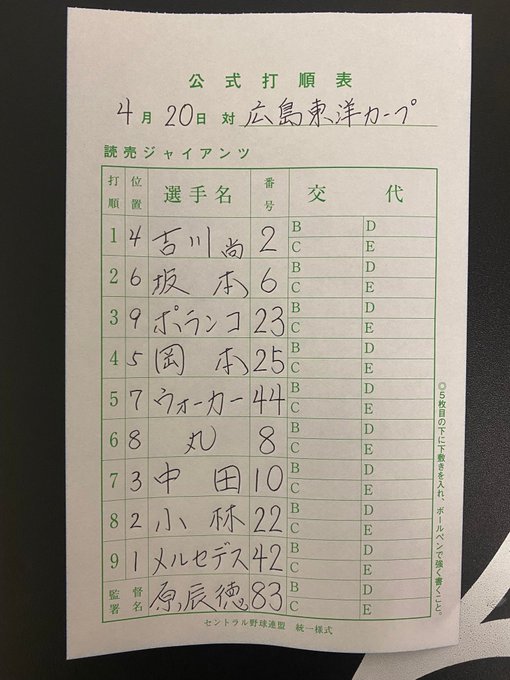 公式打順表
4月20日 対 広島東洋カープ
読売ジャイアンツ
打順 位置 選手名 番号 交代
1 4 吉川尚 2 B D
C E
2 6 坂本 6 B D
C E
3 9 ポランコ 23 B D
C E
4 5 岡本 25 B D
C E
5 7 ウォーカー 44 B D
C E
6 8 丸 8 B D
C E
7 3 中田 10 B D
C E
8 2 小林 22 B D
C E
9 1 メルセデス 42 B D
C E
監督署名 原辰徳 83 B D
C E
セントラル野球連盟 統一様式
◎5枚目の下に下敷きを入れ、ボールペンで強く書くこと。